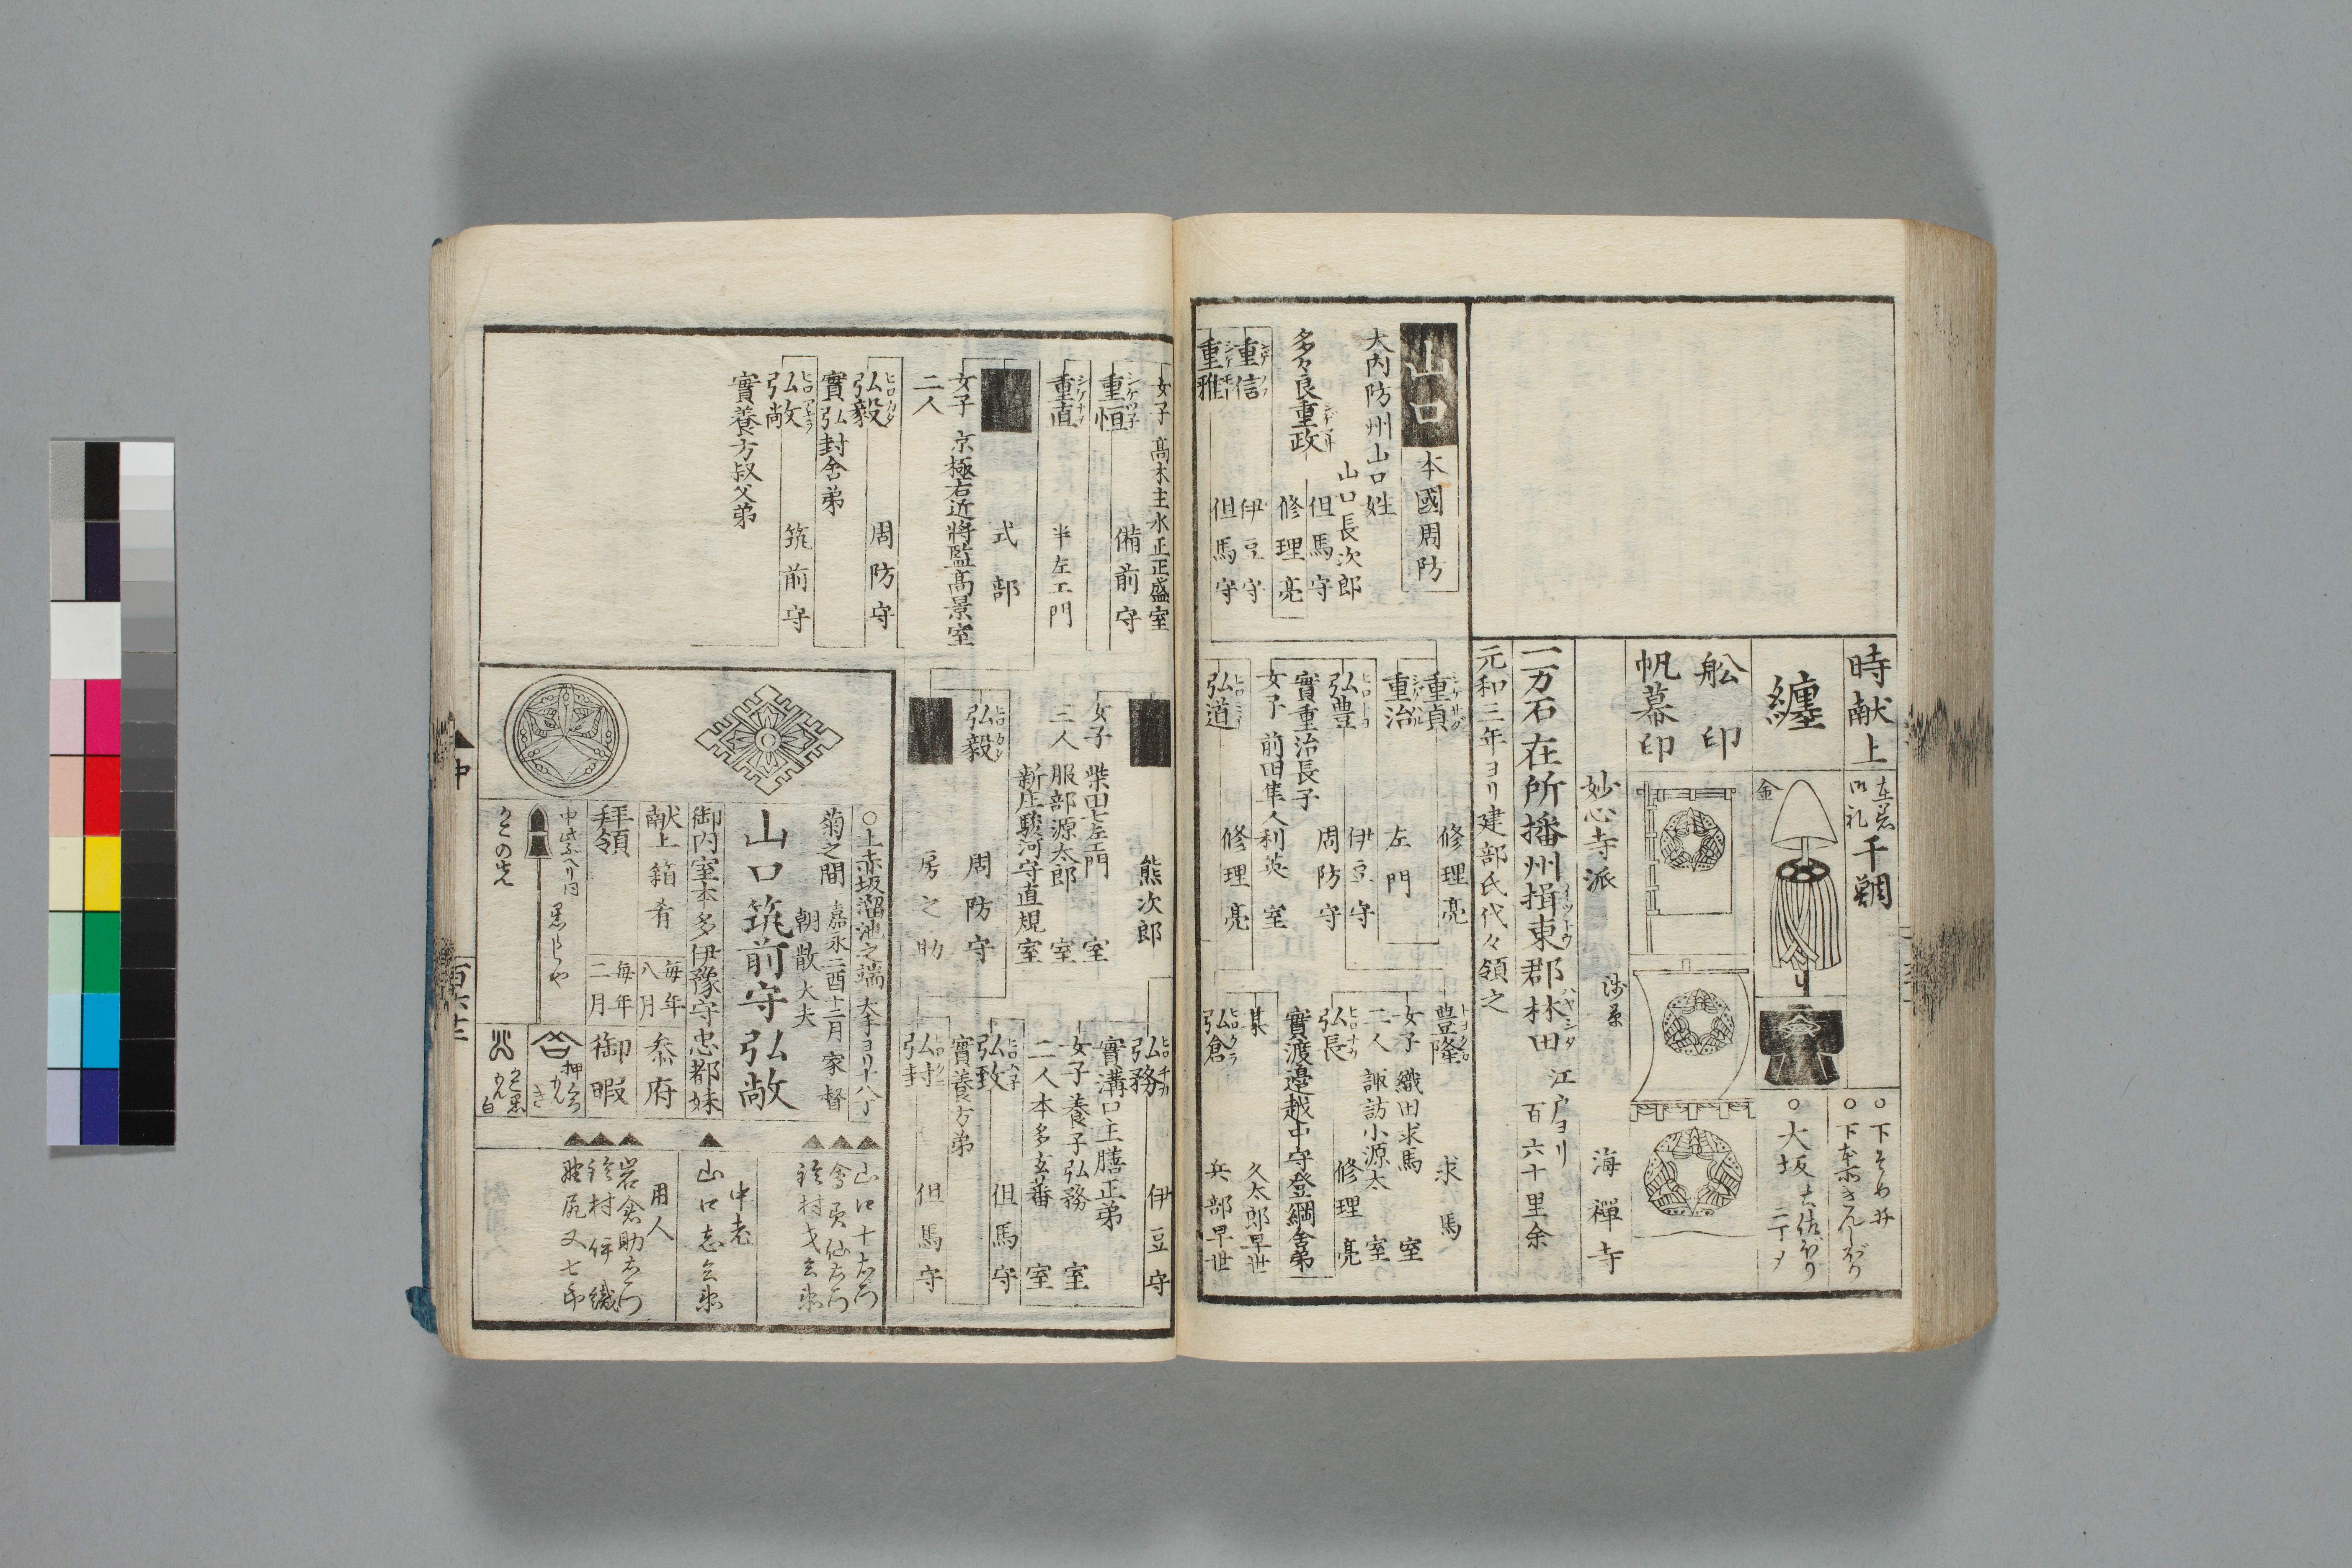 時献上
在着
御礼
千鯛
纏
金
舩印
帆幕印
○下そめ井
○大坂
二丁メ
妙心寺派
浅草
海禪寺
一万石在所播州揖東郡林田
イツトウ
ハヤシダ
江戸ヨリ
百六十里余
元和三年ヨリ建部氏代々領之
山口
本國周防
大内防州山口姓
山口長次郎
多々良重政
但馬守
修理亮
重信
伊豆守
重雅
但馬守
重貞
修理亮
重治
左門
伊豆守
弘豊
周防守
實重治長子
女子 前田隼人利英 室
弘道
修理亮
豊隆
求馬
女子 織田求馬 室
二人 諏訪小源太 室
弘長
修理亮
實渡邉越中守登綱舎弟
某
久太郎早世
弘倉
兵部早世
女子 髙木主水正正盛室
重恒
備前守
重直
半左エ門
式部
女子 京極右近將監髙景室
二人
弘毅
周防守
實弘封舎弟
弘敞
筑前守
實養方叔父弟
熊次郎
女子 柴田七左エ門 室
三人 服部源太郎 室
新庄駿河守直規室
弘毅
周防守
房之助
弘務
伊豆守
實溝口主膳正弟
女子 養子弘務 室
二人 本多玄蕃 室
弘致
但馬守
實養方弟
弘封
但馬守
○上赤坂溜池之端
大手ヨリ十八丁
菊之間
嘉永二酉十二月 家督
朝散大夫
山口筑前守弘敞
御内室本多伊豫守忠都妹
献上 箱肴
毎年
八月
参府
拝領
毎年
二月
御暇
山口十右衛門
中老
山口志兵衛
用人
岩倉助右衛門
野尻又七郎
中
百六十二